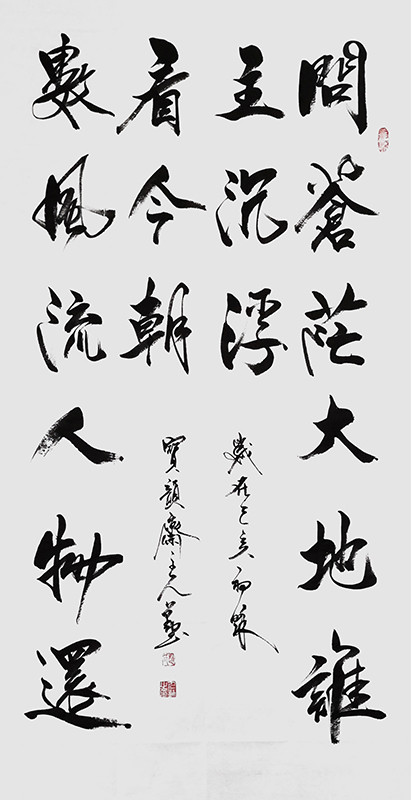 問蒼茫大地誰
主沉浮
數風流人物還
看今朝
歲在己亥初
寶韻齋主人